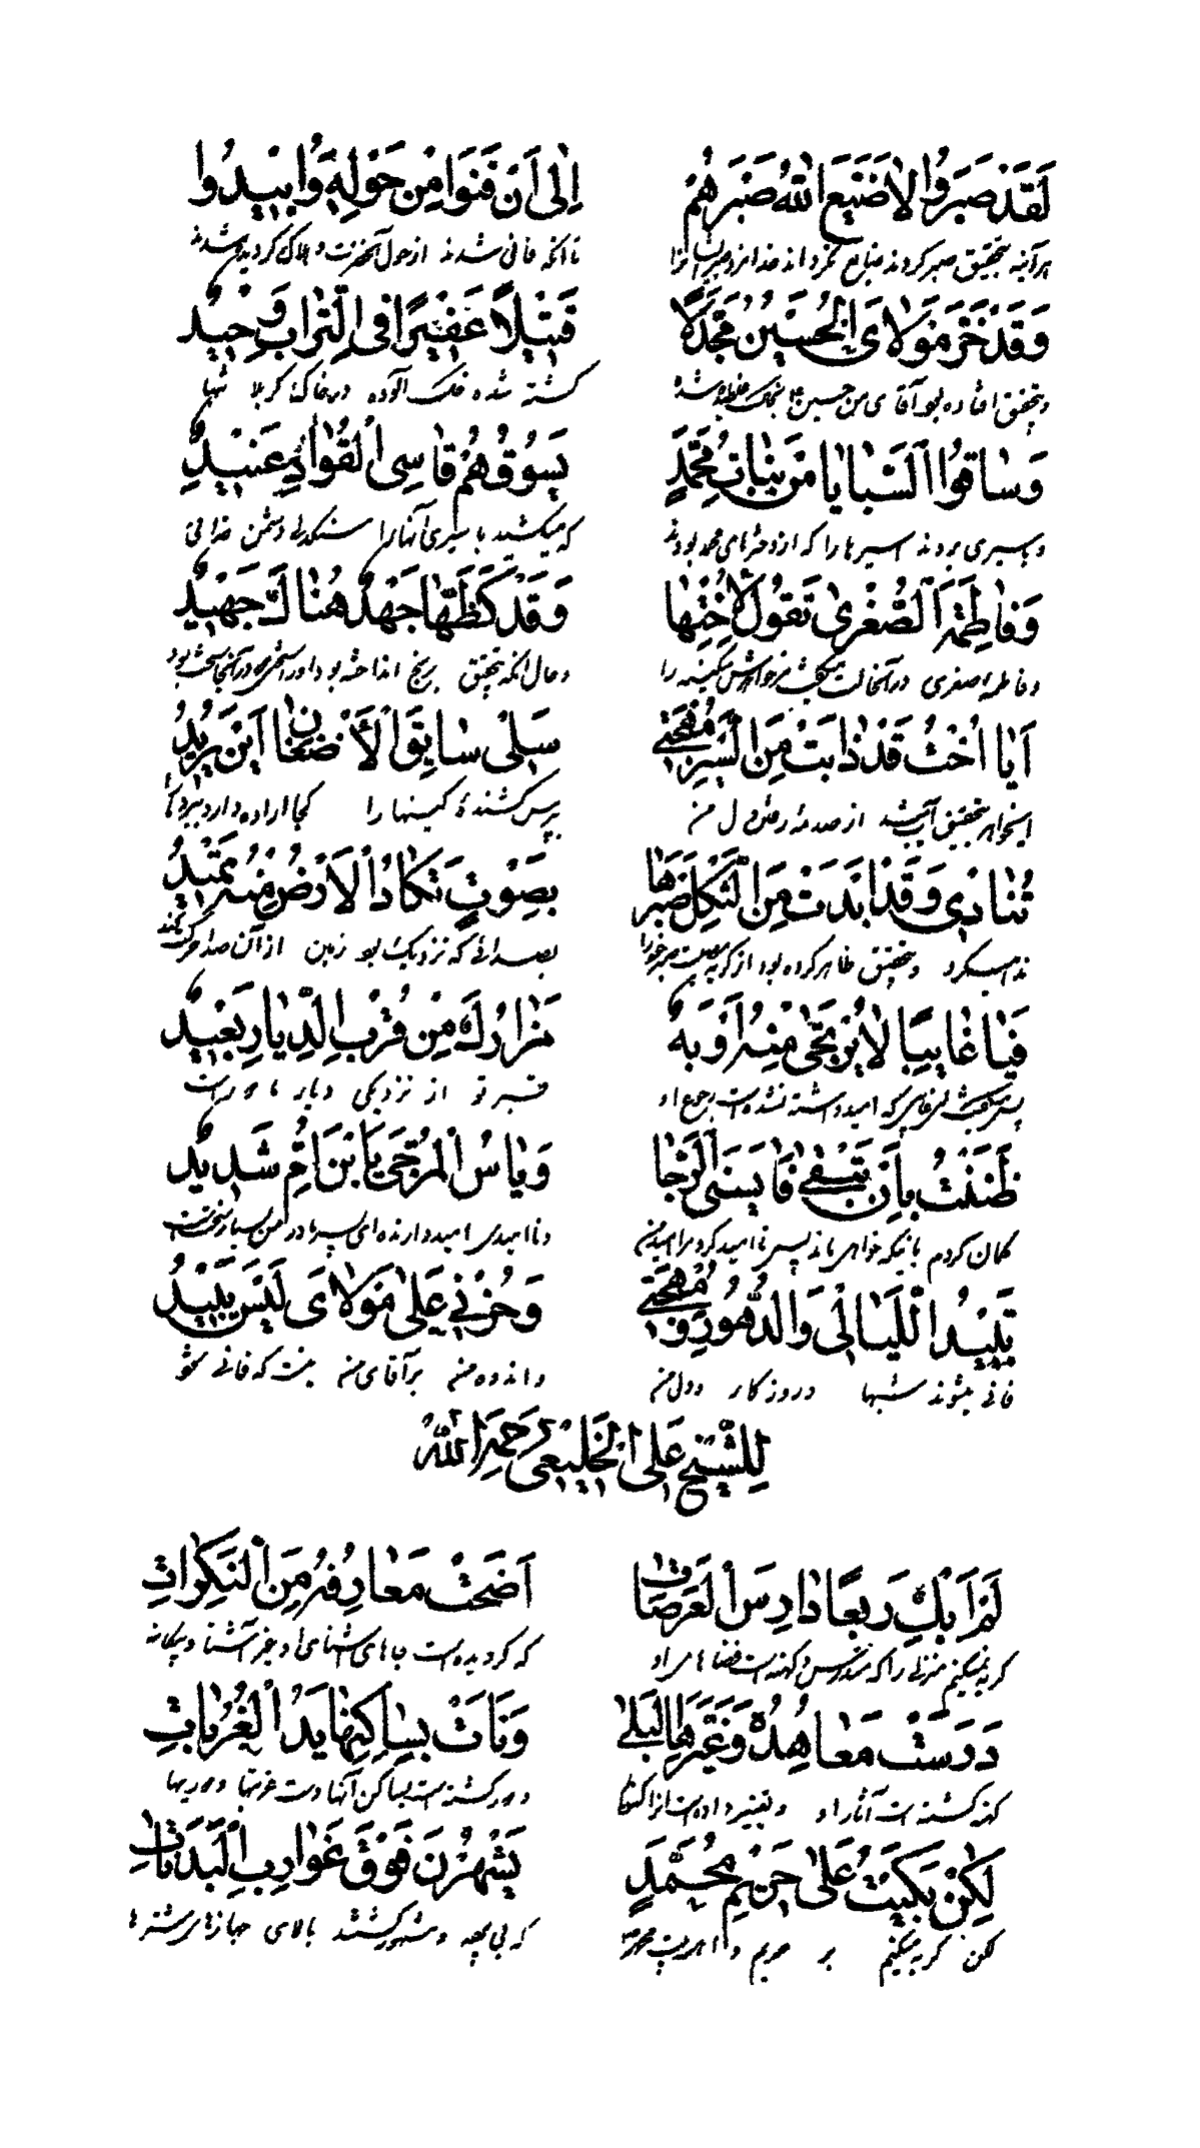 لَقَدْ صَبَرُوا لَا ضَيَّعَ اللّٰهُ صَبْرَهُمْ
اِلٰى اَنْ فَنَوْا مِنْ حَوْلِهِ وَاُبِيدُوا
هرآینه بتحقیق صبر کردند ضایع نگرداند خدا
تا آنکه فانی شدند از حول آنحضرت و هلاک گردیده شدند
وَقَدْ خَرَّ مَوْلَايَ الْحُسَيْنُ مُجَدَّلًا
قَتِيلًا عَفِيرًا فِى التُّرَابِ وَحِيدُ
و بتحقیق افتاده بود آقای من حسین بخاک
کشته شده خاک آلوده در خاک کربلا تنها
وَسَاقُوا السَّبَايَا مِنْ بَنَاتِ مُحَمَّدٍ
يَسُوقُهُمُ قَاسِى الْفُؤَادِ عَنِيدُ
و باسیری بردند اسیرها را که از دخترهای محمد بودند
که میکشید باسیری آنها را سنگدلی دشمن خدائی
وَفَاطِمَةُ الصُّغْرٰى تَقُولُ لِاُخْتِهَا
وَقَدْ كَظَّهَا جَهْدٌ هُنَاكَ جَهِيدُ
و فاطمه صغری در آنحالت میگفت بخواهرش سکینه را
و حال آنکه بتحقیق برنج انداخته بود او را
اَيَا اُخْتُ قَدْ ذَابَتْ مِنَ السَّيْرِ مُهْجَتِى
سَلِى سَايِقَ الْاَضْغَانِ اَيْنَ يُرِيدُ
ایخواهر بتحقیق آب شد از صدمهٔ رفتن دل من
بپرس کشندهٔ کینها را کجا اراده دارد
تُنَادِى وَقَدْ اَبْدَتْ مِنَ الثُّكْلِ صَبْرَهَا
بِصَوْتٍ تَكَادُ الْاَرْضُ مِنْهُ تَمِيدُ
ندا میکرد و بتحقیق ظاهر کرده بود از
بصدائی که نزدیک بود زمین از آن صدا حرکت کند
فَيَا غَايِبًا لَا يُرْتَجٰى مِنْهُ اَوْبَةٌ
مَزَارُكَ مِنْ قُرْبِ الدِّيَارِ بَعِيدُ
پس میگفت ای غایبی که امید داشته نشده است رجوع او
قبر تو از نزدیکی دیار ما دور است
ظَنَنْتُ بِاَنْ تَبْقٰى فَايَسَنِى الرَّجَا
وَيَاسُ الْمُرَجّٰى يَا بْنَ اُمِّ شَدِيدُ
گمان کردم باینکه خواهی ماند پس ناامید کرد مرا امید من
و ناامیدی امید دارنده ای پسر مادر من بسیار سخت است
تَبِيدُ اللَّيَالِى وَالدُّهُورُ وَمُهْجَتِى
وَحُزْنِى عَلٰى مَوْلَايَ لَيْسَ يَبِيدُ
فانی میشوند شبها و روزگار و دل من
و اندوه من بر آقای من نیست که فانی شود
لِلشَّيْخِ عَلِى الْخَلِيعِى رَحِمَهُ اللّٰهُ
لَمْ اَبْكِ رَبْعًا دَارِسَ الْعَرَصَاتِ
اَضْحَتْ مَعَارِفُهُ مِنَ النَّكِرَاتِ
گریه نمیکنم منزلی را که مندرس و کهنه است فضاهای او
که گردیده است جاهای آشنای او غیر آشنا و بیگانه
دَرَسَتْ مَعَاهِدُهُ وَغَيَّرَهَا الْبَلٰى
وَنَاَتْ بِسَاكِنِهَا يَدُ الْغُرُبَاتِ
کهنه گشته است آثار او و تغییر داده است آنرا کهنگی
و دور گشته است بساکن آنها دست غربتها و دوریها
لٰكِنْ بَكَيْتُ عَلٰى حَرِيمِ مُحَمَّدٍ
يُشْهَرْنَ فَوْقَ غَوَارِبِ الْبَدَنَاتِ
لکن گریه میکنم بر حریم و اهل بیت محمد
که بی پرده و مشهور گشتند بالای جهازهای شترها